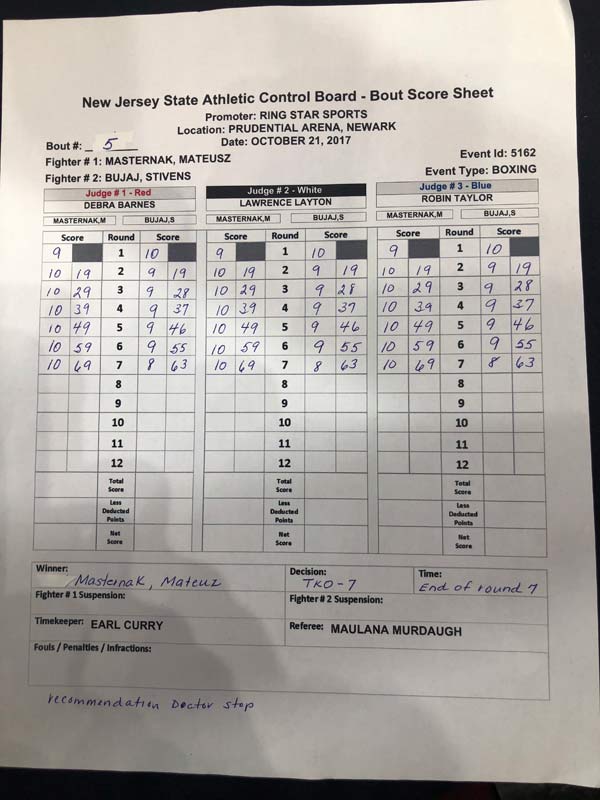 New Jersey State Athletic Control Board - Bout Score Sheet
Promoter: RING STAR SPORTS
Location: PRUDENTIAL ARENA, NEWARK
Bout #: 5 Date: OCTOBER 21, 2017
Fighter # 1: MASTERNAK, MATEUSZ Event Id: 5162
Fighter # 2: BUJAJ, STIVENS Event Type: BOXING
Judge # 1 - Red Judge # 2 - White Judge # 3 - Blue
DEBRA BARNES LAWRENCE LAYTON ROBIN TAYLOR
MASTERNAK,M BUJAJ,S MASTERNAK,M BUJAJ,S MASTERNAK,M BUJAJ,S
Score Round Score Score Round Score Score Round Score
9 1 10 9 1 10 9 1 10
10 19 2 9 19 10 19 2 9 19 10 19 2 9 19
10 29 3 9 28 10 29 3 9 28 10 29 3 9 28
10 39 4 9 37 10 39 4 9 37 10 39 4 9 37
10 49 5 9 46 10 49 5 9 46 10 49 5 9 46
10 59 6 9 55 10 59 6 9 55 10 59 6 9 55
10 69 7 8 63 10 69 7 8 63 10 69 7 8 63
8 8 8
9 9 9
10 10 10
11 11 11
12 12 12
Total Total Total
Score Score Score
Less Less Less
Deducted Deducted Deducted
Points Points Points
Net Net Net
Score Score Score
Winner: Decision: Time:
Masternak, Mateuz TKO-7 End of round 7
Fighter # 1 Suspension: Fighter # 2 Suspension:
Timekeeper: EARL CURRY Referee: MAULANA MURDAUGH
Fouls / Penalties / Infractions:
recommendation Doctor stop